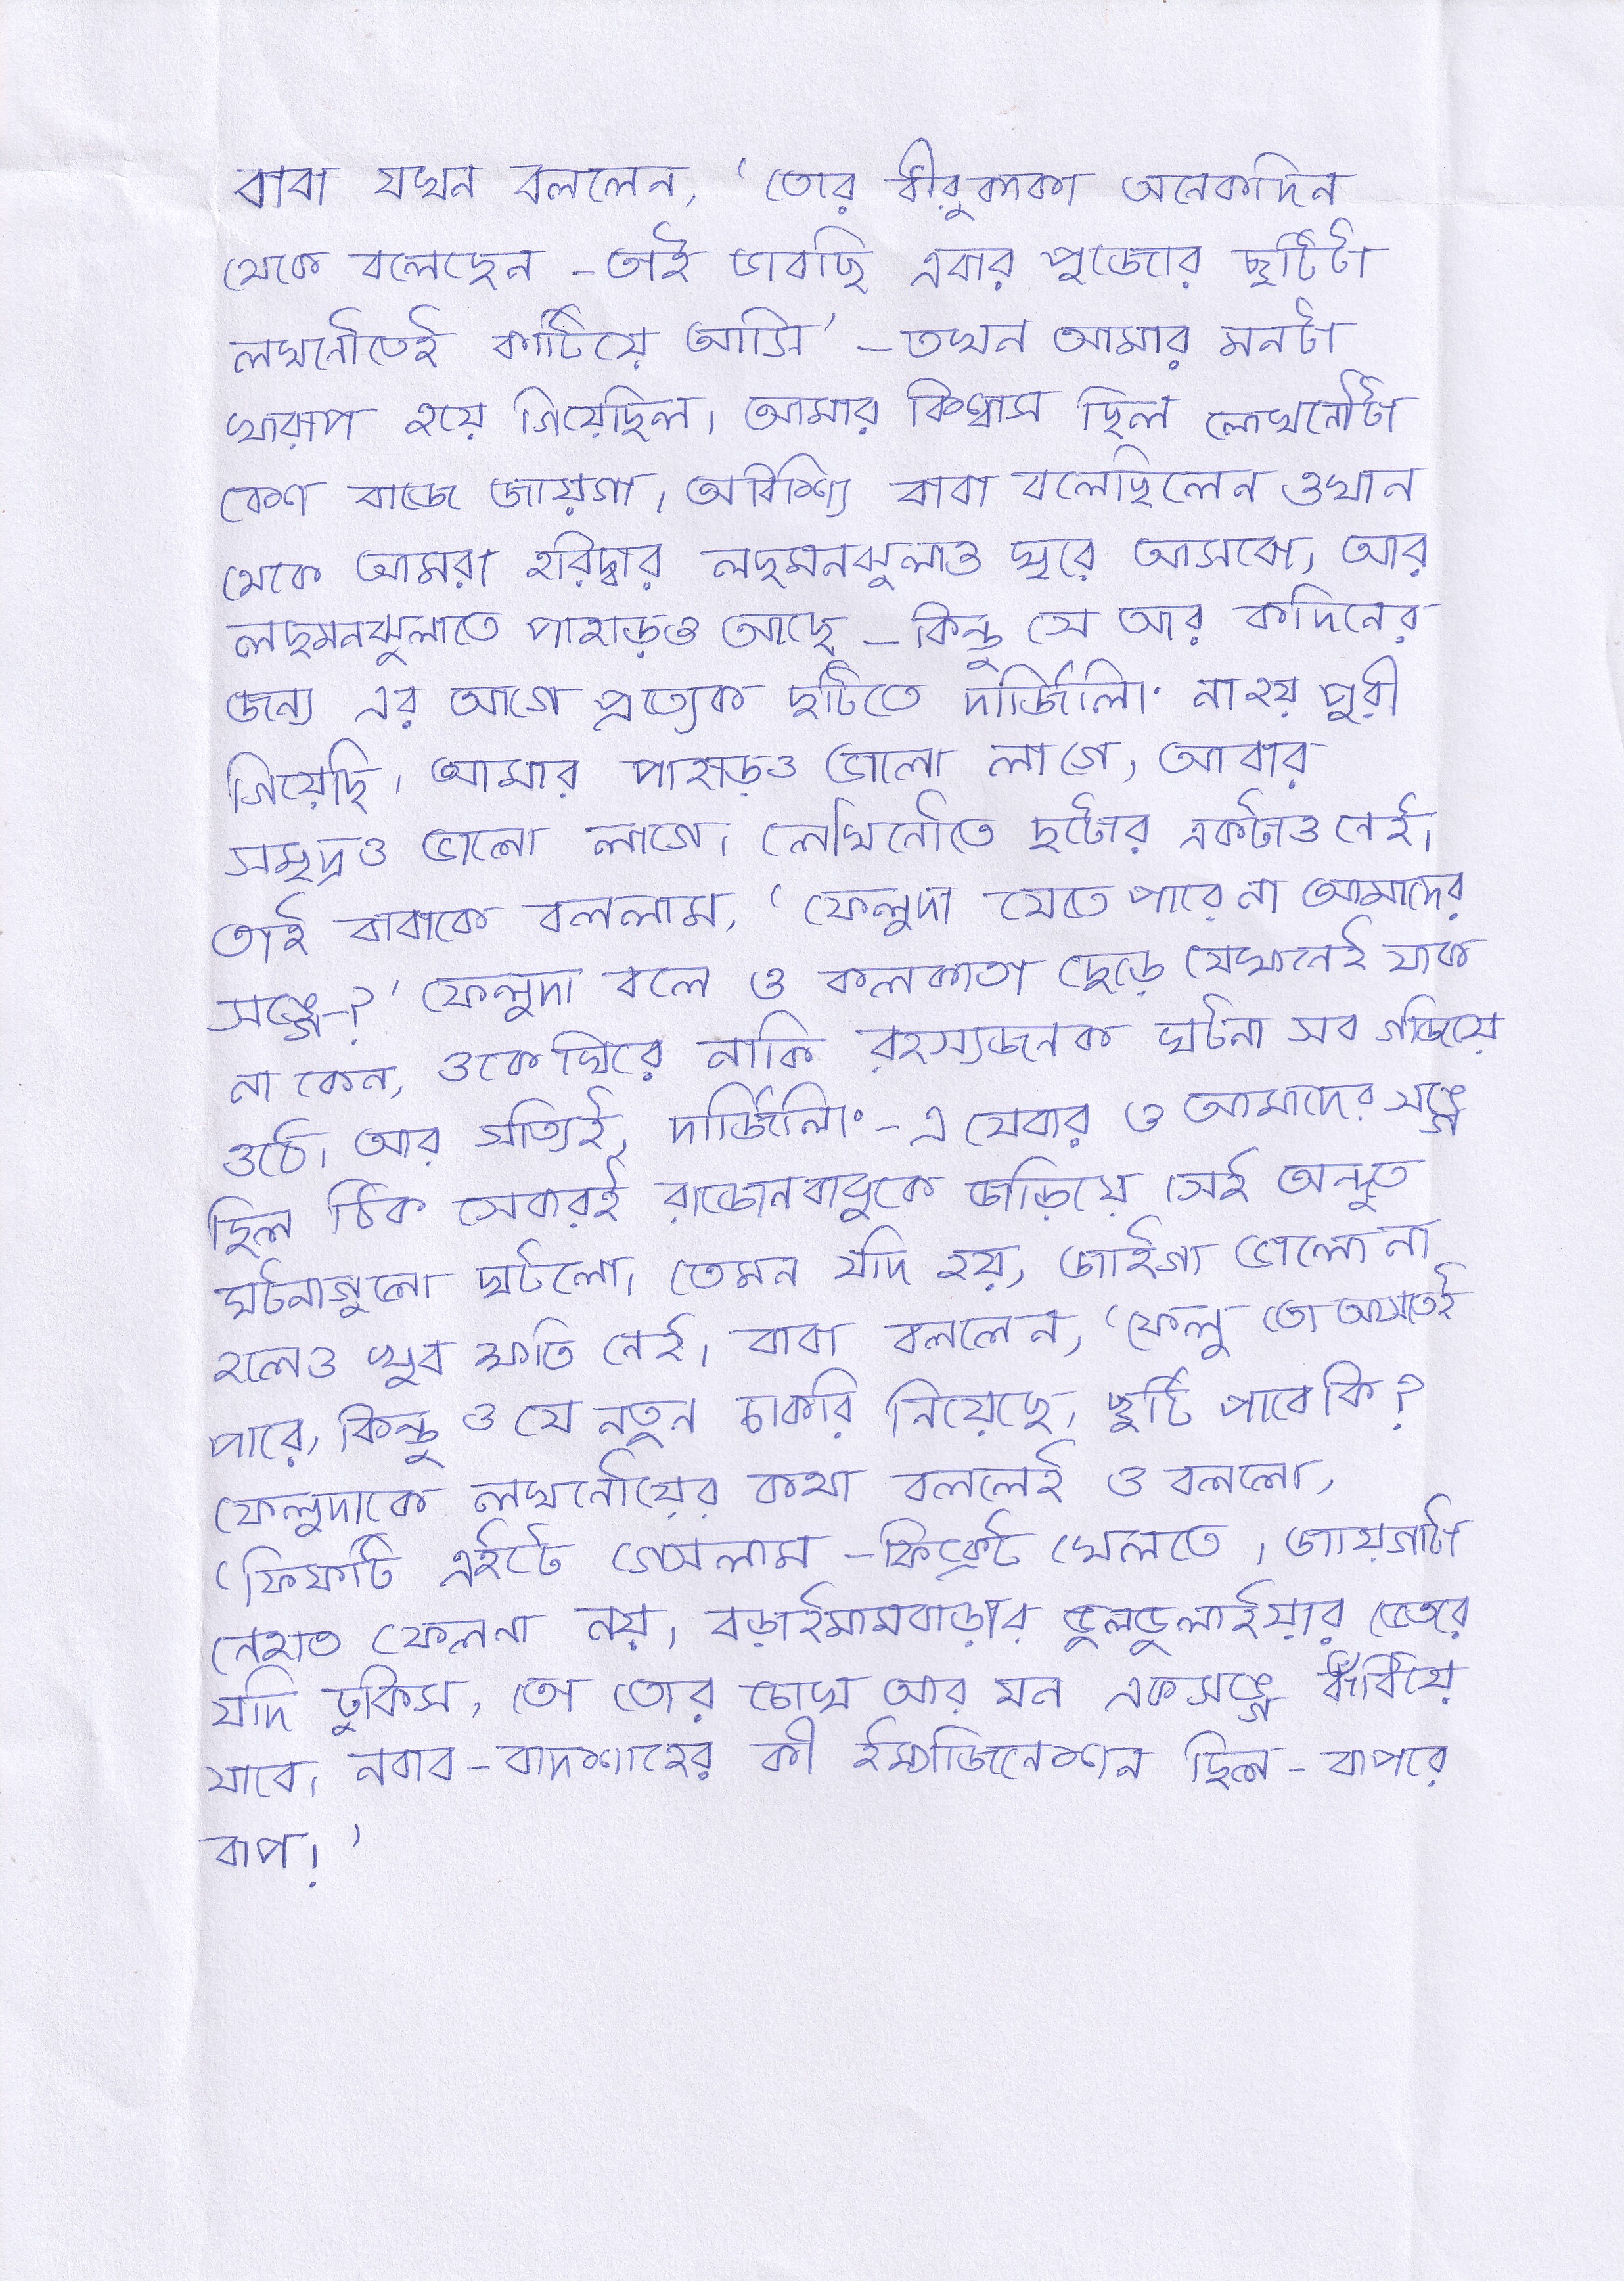 বাবা যখন বললেন, ‘তোর ধীরুকাকা অনেকদিন
থেকে বলেছেন -তাই ভাবছি এবার পুজোর ছুটিটা
লখনৌতেই কাটিয়ে আসি’ -তখন আমার মনটা
খারাপ হয়ে গিয়েছিল। আমার বিশ্বাস ছিল লোখনৌটা
বেশ বাজে জায়গা। অবিশ্যি বাবা বলেছিলেন ওখান
থেকে আমরা হরিদ্বার লছমনঝুলাও ঘুরে আসবো, আর
লছমনঝুলাতে পাহাড়ও আছে -কিন্তু সে আর কদিনের
জন্য এর আগে প্রত্যেক ছুটিতে দার্জিলিং না হয় পুরী
গিয়েছি। আমার পাহাড়ও ভালো লাগে, আবার
সমুদ্রও ভালো লাগে। লেখিনৌতে ছটোর একটাও নেই।
তাই বাবাকে বললাম, ‘ফেলুদা যেতে পারে না আমাদের
সঙ্গে-?’ ফেলুদা বলে ও কলকাতা ছেড়ে যেখানেই যাক
না কেন, ওকে ঘিরে নাকি রহস্যজনক ঘটনা সব গজিয়ে
ওঠে। আর সত্যিই, দার্জিলিং-এ যেবার ও আমাদের সঙ্গে
ছিল ঠিক সেবারই রাজেনবাবুকে জড়িয়ে সেই অদ্ভুত
ঘটনাগুলো ঘটলো। তেমন যদি হয়, জাইগা ভালো না
হলেও খুব ক্ষতি নেই। বাবা বললেন, ‘ফেলু তো আসতেই
পারে, কিন্তু ও যে নতুন চাকরি নিয়েছে, ছুটি পাবে কি?
ফেলুদাকে লখনৌয়ের কথা বললেই ও বললো,
‘ফিফটি এইটে গেসলাম -ক্রিকেট খেলতে। জায়গাটা
নেহাত ফেলনা নয়। বড়াইমামবাড়ার ভুলভুলাইয়ার ভেতরে
যদি ঢুকিস, তো তোর চোখ আর মন একসঙ্গে ধাঁধিয়ে
যাবে। নবাব-বাদশাহের কী ইম্যাজিনেশন ছিল - বাপরে
বাপ।’